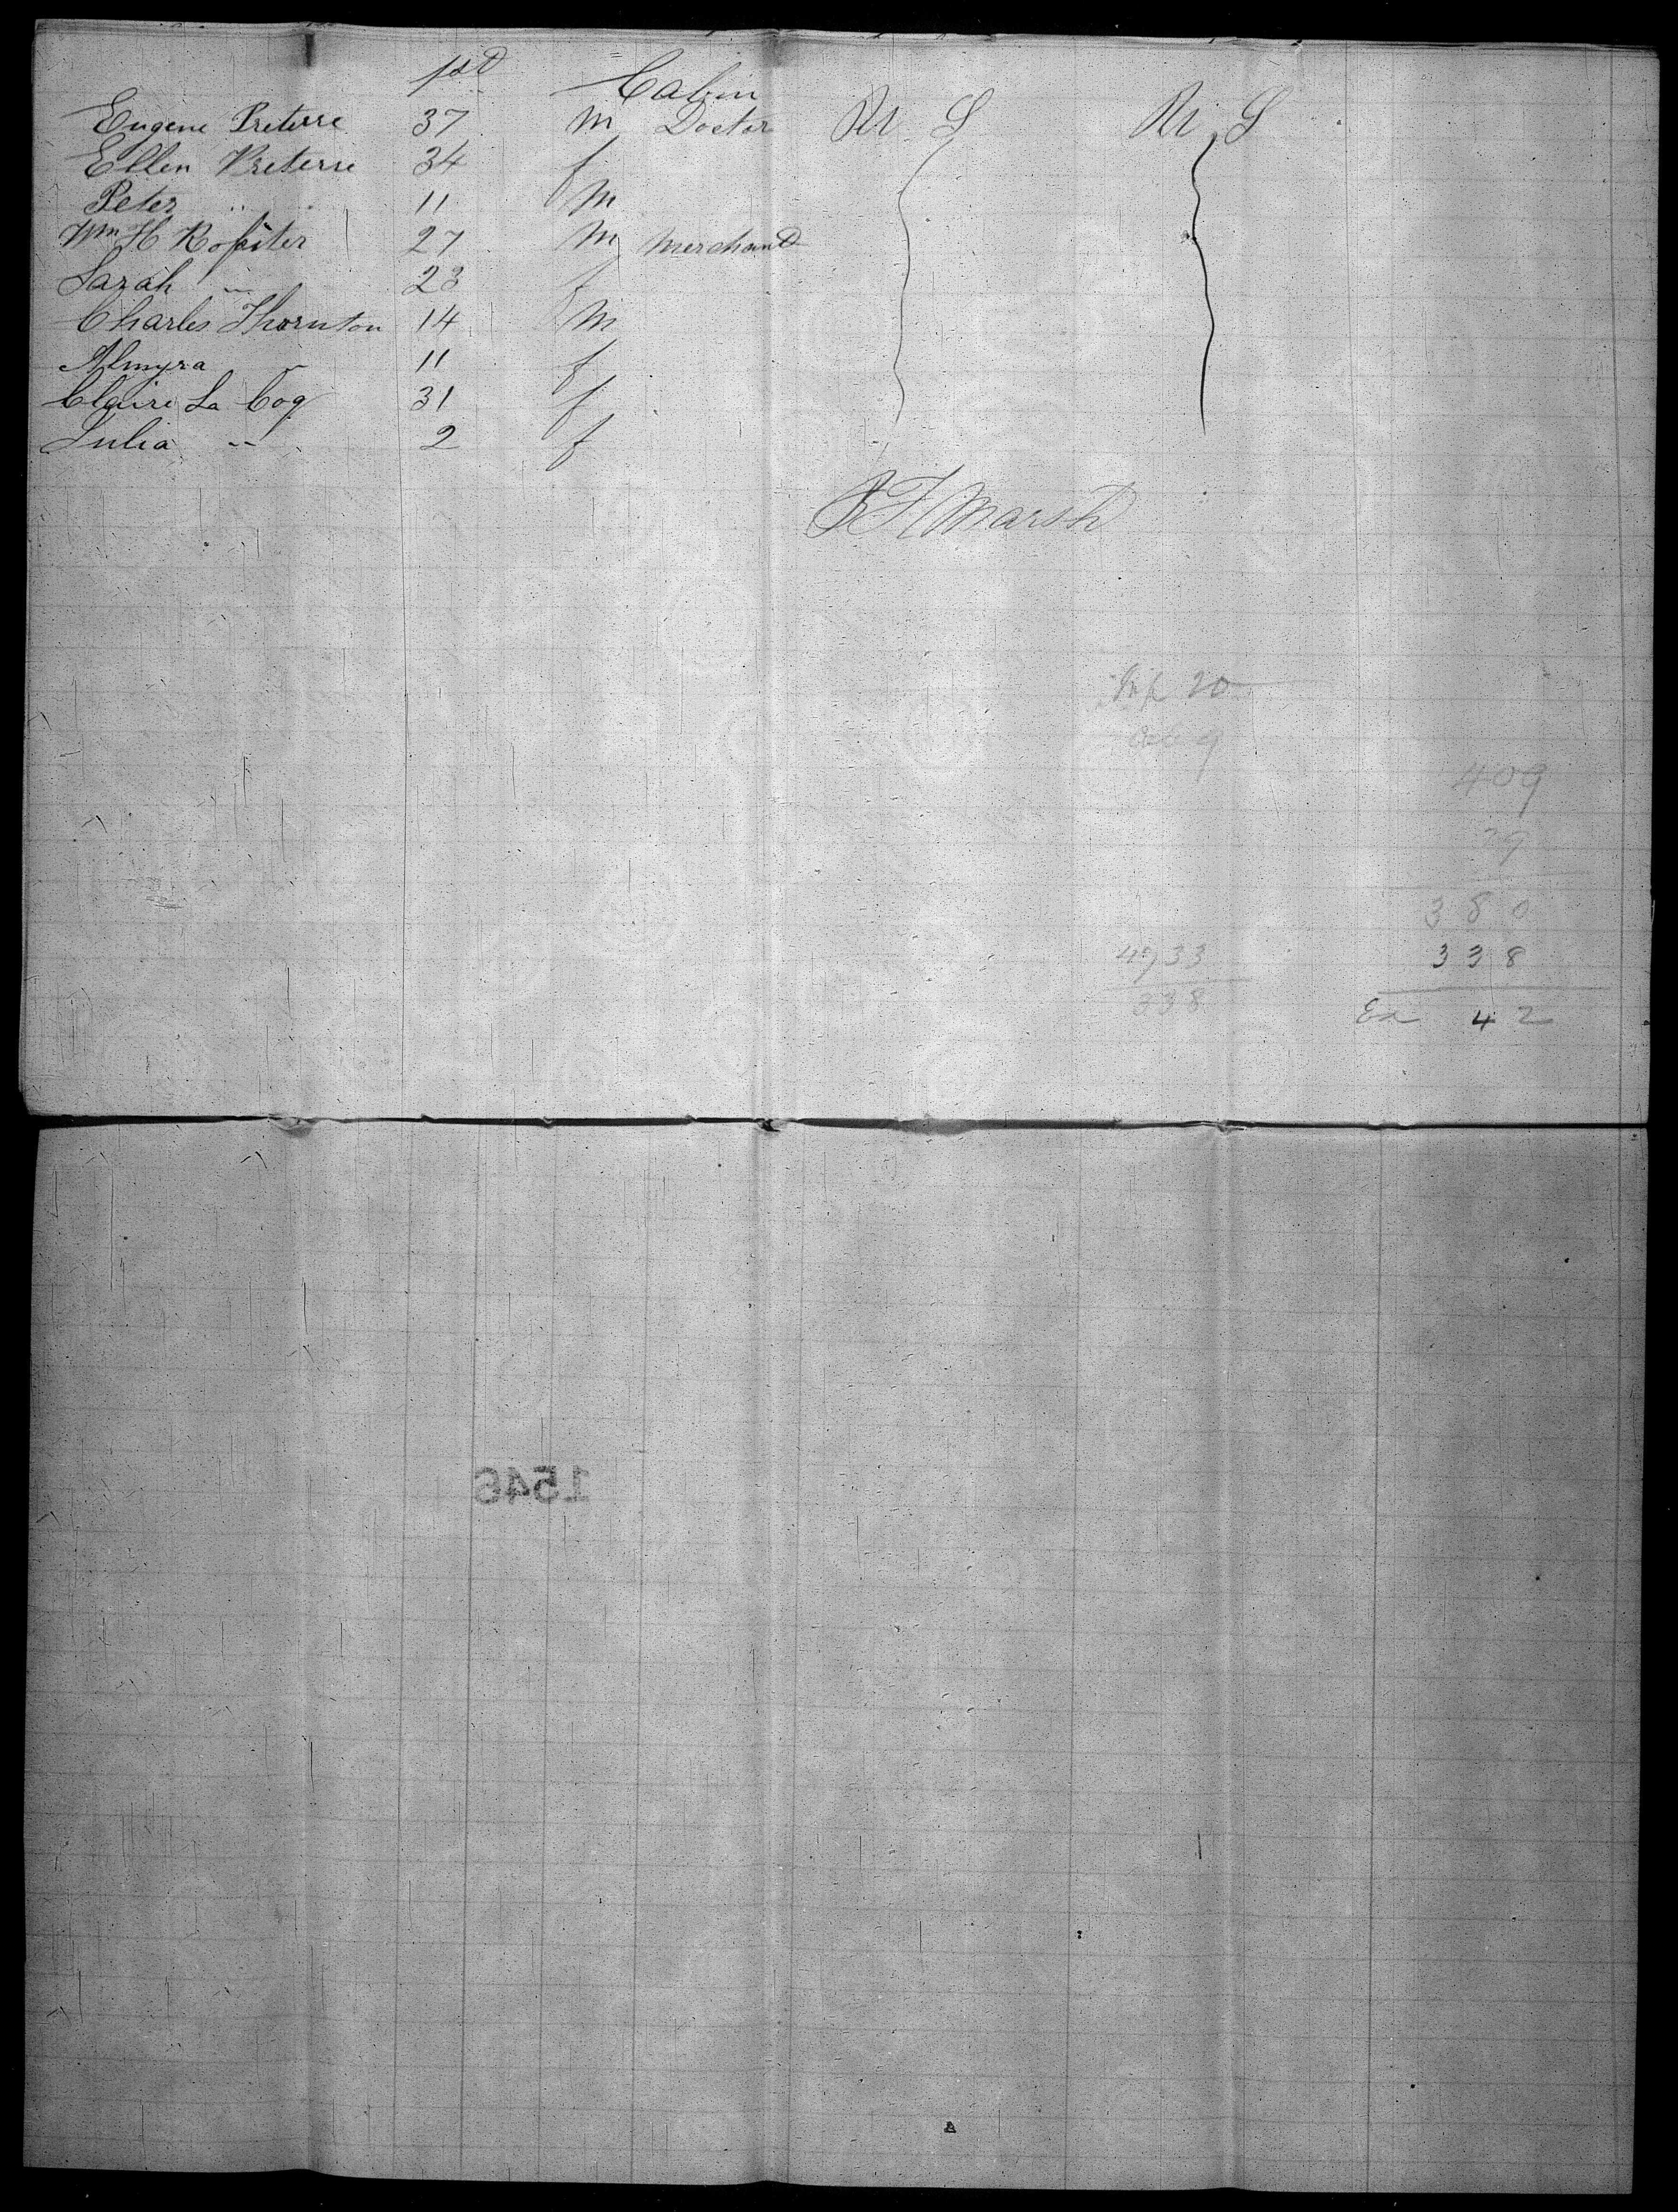 1st Cabin
Eugene Preterre 37 M Doctor U S U S
Ellen Preterre 34 f
Peter " 11 M
Wm H Rossiter 27 M Merchant
Sarah " 23 f
Charles Thornton 14 M
Almyra " 11 f
Claire La Coq 31 f
Julia " 2 f
Marsh
20
9
409
29
380
4733 338
338
Ex 42
1546